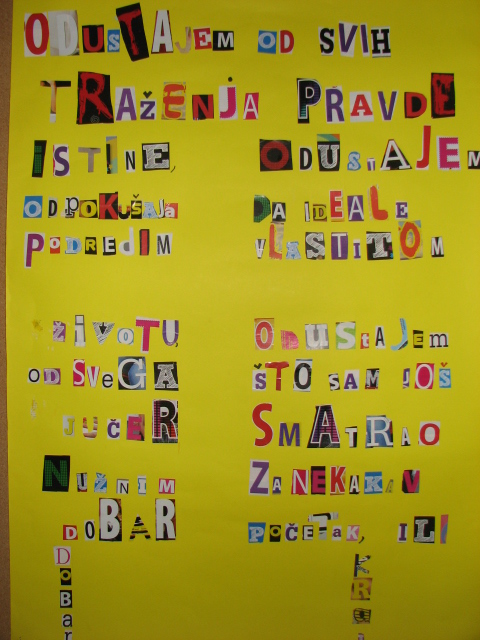 ODUSTAJEM OD SVIH
TRAŽENJA PRAVDE
ISTINE, ODUSTAJEM
OD POKUŠAJA DA IDEALE
PODREDIM VLASTITOM
ŽIVOTU ODUSTAJEM
OD SVEGA ŠTO SAM JOŠ
JUČER SMATRAO
NUŽNIM ZA NEKAKAV
DOBAR POČETAK, ILI
DOBAR
KRAJ